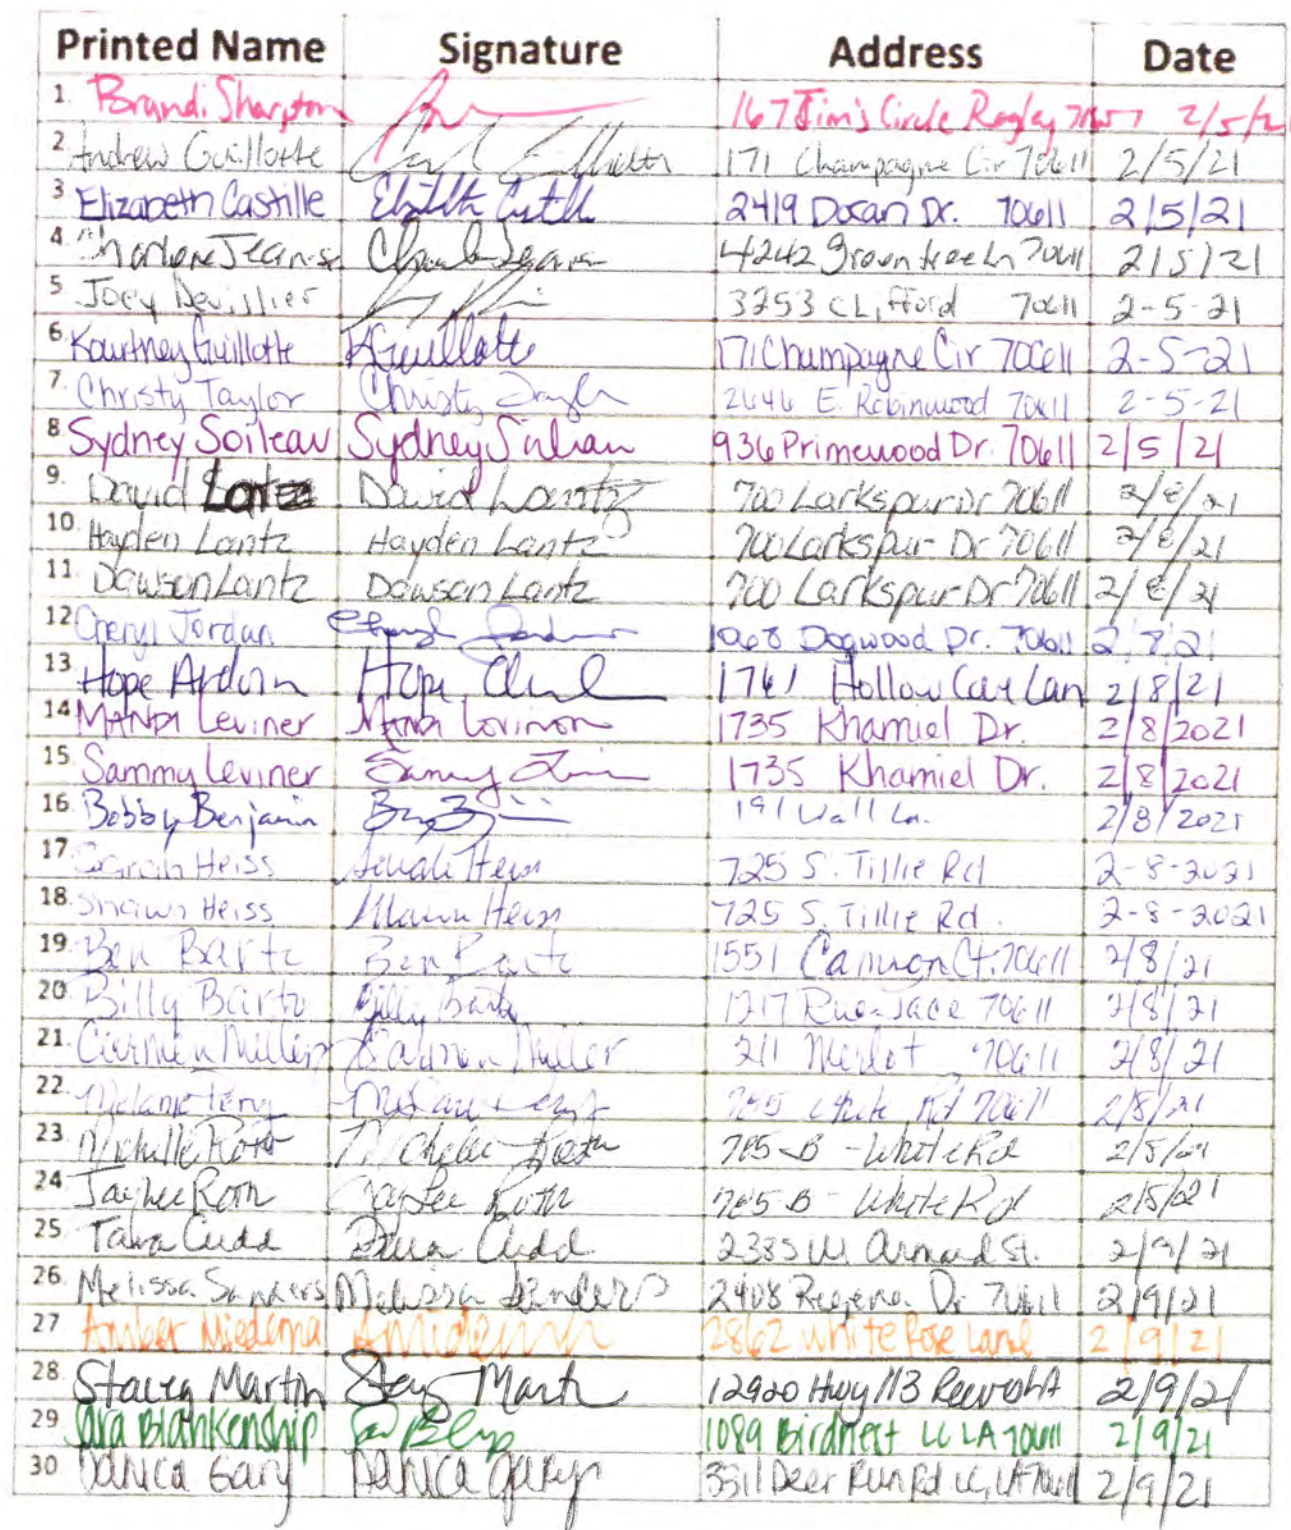 Printed Name Signature Address Date
1. Brandi Sharpton 167 Jim's Circle Ragley 2/5/21
2. Andrew Guillotte 171 Champagne Cir 70611 2/5/21
3 Elizabeth Castille Elizabeth Castille 2419 Ducan Dr. 70611 2/5/21
4. Charlene Jeanise 4242 Greentree Ln 70611 2/5/21
5. Joey Devillier 3253 Clifford 70611 2-5-21
6. Kourtney Guillotte KGuillotte 171 Champagne Cir 70611 2-5-21
7. Christy Taylor Christy Taylor 2646 E. Robinwood 70611 2-5-21
8. Sydney Soileau Sydney Soileau 936 Primewood Dr. 70611 2/5/21
9. David Lantz David Lantz 700 Larkspur Dr 70611 2/8/21
10. Hayden Lantz Hayden Lantz 700 Larkspur Dr 70611 2/8/21
11. Dawson Lantz Dawson Lantz 700 Larkspur Dr 70611 2/8/21
12 Cheryl Jordan Cheryl Jordan 1068 Dogwood Dr. 70611 2/8/21
13. Hope Ardoin Hope 1761 Hollow Lan 2/8/21
14 MANDI Leviner MANDI Leviner 1735 Khamiel Dr. 2/8/2021
15. Sammy Leviner Sammy 1735 Khamiel Dr. 2/8/2021
16. Bobby Benjamin 191 Wall Ln. 2/8/2021
17. Sarah Heiss Sarah Heiss 725 S. Tillie Rd 2-8-2021
18. Shawn Heiss Shawn Heiss 725 S. Tillie Rd. 2-8-2021
19. Ben Bartz Ben Bartz 1551 Ct. 70611 2/8/21
20. Billy Bartz Billy Bartz 1217 70611 2/8/21
21. Carmen Miller Carmen Miller 211 Merlot 70611 2/8/21
22. Melanie Terry Melanie Terry White Rd 70611 2/8/21
23. Michelle Roth Michelle Roth 785-B - White Rd
24 Jaylee Roth Jaylee Roth 785-B - White Rd
25. Tara Cudd Tara Cudd 2385 W. Armand St. 2/9/21
26. Melissa Sanders Melissa Sanders 2408 Dr 70611 2/9/21
27 Amber Miedema 2862 White Rose Lane 2/9/21
28. Stacey Martin Stacey Martin 12920 Hwy 113 Reeves LA 2/9/21
29 Sara Blankenship 1089 Birdnest LC LA 70611 2/9/21
30 Danica Gary Danica Gary 3311 Deer Run Rd LC, LA 70611 2/9/21